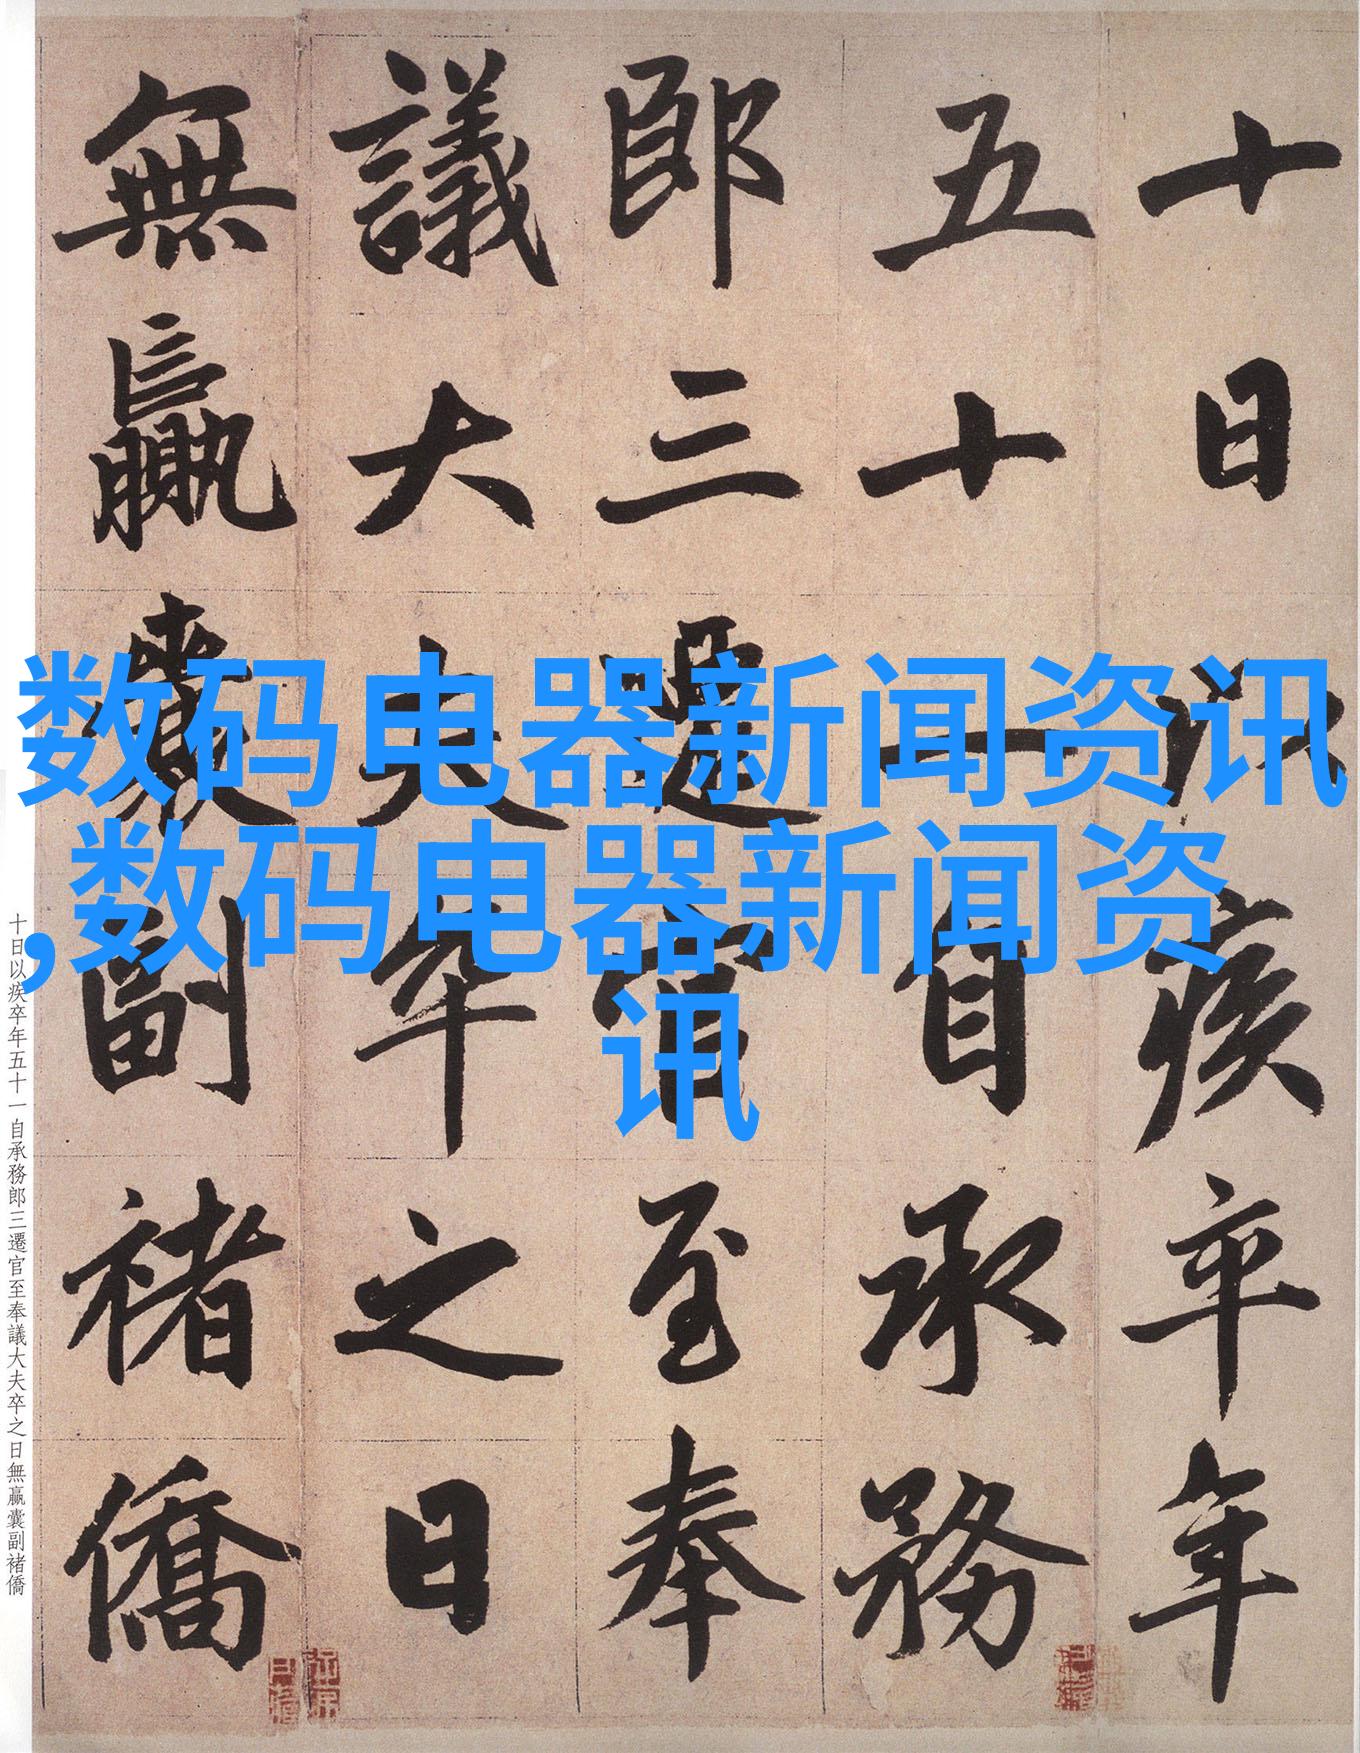 十日以疾卒年
五十一自承務
郎三遷官至奉
議大夫卒之日
無贏囊副褚僑
数码电器新闻资讯
,数码电器新闻资
讯
十日以疾卒年五十一自承務郎三遷官至奉議大夫卒之日無贏囊副褚僑